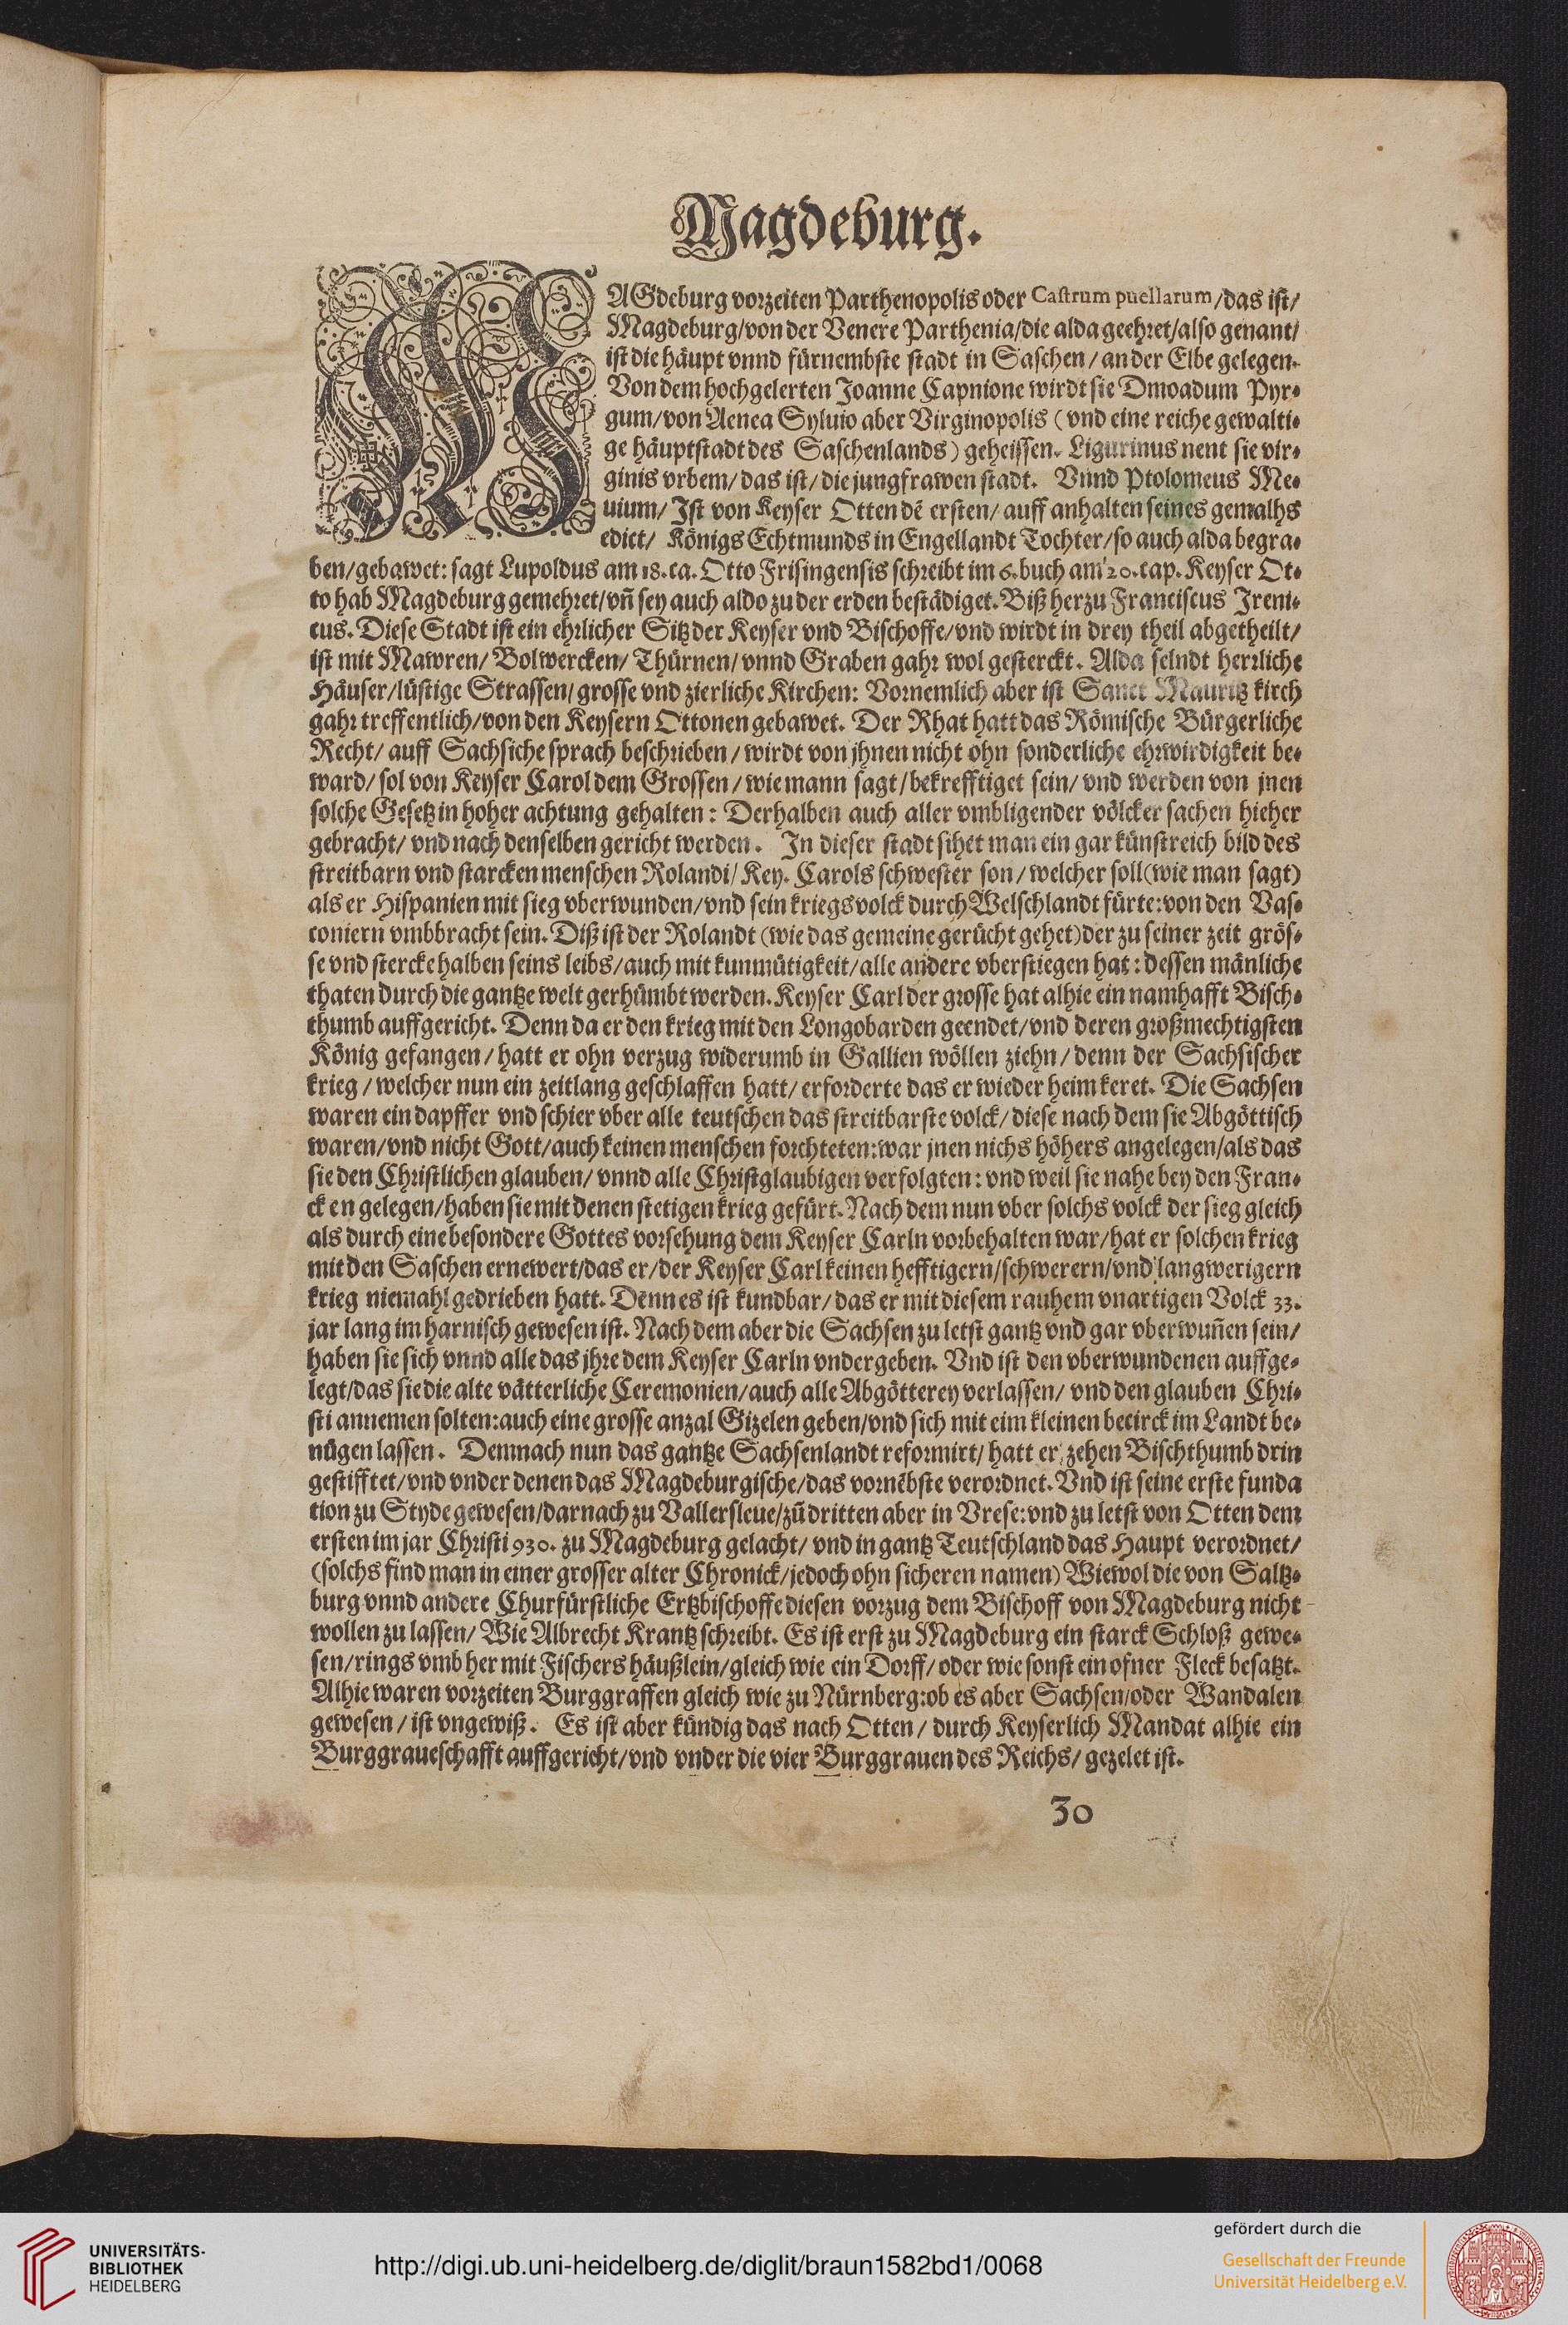 Magdeburg.
MAGdeburg vorzeiten Parthenopolis oder Castrum puellarum/das ist/
Magdeburg/von der Venere Parthenia/die alda geehret/also genant/
ist die häupt vnnd fürnembste stadt in Saschen/an der Elbe gelegen.
Von dem hochgelerten Joanne Capnione wirdt sie Dmoadum Pyr⸗
gum/von Aenea Syluio aber Virginopolis (vnd eine reiche gewalti⸗
ge häuptstadt des Saschenlands) geheissen. Ligurinus nent sie vir⸗
ginis vrbem/das ist/die jungfrawen stadt. Vnnd Ptolomeus Me⸗
uium/Ist von Keyser Otten dē ersten/auff anhalten seines gemalhs
edict/ Königs Echtmunds in Engellandt Tochter/so auch alda begra⸗
ben/gebawet: sagt Lupoldus am 18. ca. Otto Frisingensis schreibt im 6. buch am 20. cap. Keyser Ot⸗
to hab Magdeburg gemehret/vñ sey auch aldo zu der erden bestädiget. Biß herzu Franciscus Ireni⸗
cus. Diese Stadt ist ein ehrlicher Sitz der Keyser vnd Bischoffe/vnd wirdt in drey theil abgetheilt/
ist mit Mawren/Bolwercken/Thürnen/vnnd Graben gahr wol gesterckt. Alda selndt herrliche
Häuser/lüstige Strassen/grosse vnd zierliche Kirchen: Vornemlich aber ist Sanct Mauritz kirch
gahr treffentlich/von den Keysern Ottonen gebawet. Der Rhat hatt das Römische Bürgerliche
Recht/auff Sachsiche sprach beschrieben/wirdt von jhnen nicht ohn sonderliche ehrwirdigkeit be⸗
ward/sol von Keyser Carol dem Grossen/wie mann sagt/bekrefftiget sein/vnd werden von jnen
solche Gesetz in hoher achtung gehalten: Derhalben auch aller vmbligender völcker sachen hieher
gebracht/vnd nach denselben gericht werden. In dieser stadt sihet man ein gar künstreich bild des
streitbarn vnd starcken menschen Rolandi/Key. Carols schwester son/welcher soll (wie man sagt)
als er Hispanien mit sieg vberwunden/vnd sein kriegsvolck durch Welschlandt fürte: von den Vas⸗
coniern vmbbracht sein. Diß ist der Rolandt (wie das gemeine gerücht gehet) der zu seiner zeit grös⸗
se vnd stercke halben seins leibs/auch mit kunmütigkeit/alle andere vberstiegen hat: dessen mänliche
thaten durch die gantze welt gerhümbt werden. Keyser Carl der grosse hat alhie ein namhafft Bisch⸗
thumb auffgericht. Denn da er den krieg mit den Longobarden geendet/vnd deren großmechtigsten
König gefangen/hatt er ohn verzug widerumb in Gallien wöllen ziehn/denn der Sachsischer
krieg/welcher nun ein zeitlang geschlaffen hatt/erforderte das er wieder heim keret. Die Sachsen
waren ein dapffer vnd schier vber alle teutschen das streitbarste volck/diese nach dem sie Abgöttisch
waren/vnd nicht Gott/auch keinen menschen forchteten: war jnen nichs höhers angelegen/als das
sie den Christlichen glauben/vnnd alle Christglaubigen verfolgten: vnd weil sie nahe bey den Fran⸗
cken gelegen/haben sie mit denen stetigen krieg gefürt. Nach dem nun vber solchs volck der sieg gleich
als durch eine besondere Gottes vorsehung dem Keyser Carln vorbehalten war/hat er solchen krieg
mit den Saschen ernewert/das er/der Keyser Carl keinen hefftigern/schwerern/vnd langwerigern
krieg niemahl gedrieben hatt. Denn es ist kundbar/das er mit diesem rauhem vnartigen Volck 33.
jar lang im harnisch gewesen ist. Nach dem aber die Sachsen zu letst gantz vnd gar vberwuñen sein/
haben sie sich vnnd alle das jhre dem Keyser Carln vndergeben. Vnd ist den vberwundenen auffge⸗
legt/das sie die alte vätterliche Ceremonien/auch alle Abgötterey verlassen/vnd den glauben Chri⸗
sti annemen solten: auch eine grosse anzal Gizelen geben/vnd sich mit eim kleinen becirck im Landt be⸗
nügen lassen. Demnach nun das gantze Sachsenlandt reformirt/hatt er zehen Bischthumb drin
gestifftet/vnd vnder denen das Magdeburgische/das vornēbste verordnet. Vnd ist seine erste funda
tion zu Styde gewesen/darnach zu Vallersleue/zū dritten aber in Vrese: vnd zu letst von Otten dem
ersten im jar Christi 930. zu Magdeburg gelacht/vnd in gantz Teutschland das Haupt verordnet/
(solchs find man in einer grosser alter Chronick/jedoch ohn sicheren namen) Wiewol die von Saltz⸗
burg vnnd andere Churfürstliche Ertzbischoffe diesen vorzug dem Bischoff von Magdeburg nicht
wollen zu lassen/Wie Albrecht Krantz schreibt. Es ist erst zu Magdeburg ein starck Schloß gewe⸗
sen/rings vmb her mit Fischers häußlein/gleich wie ein Dorff/oder wie sonst ein ofner Fleck besatzt.
Alhie waren vorzeiten Burggraffen gleich wie zu Nürnberg: ob es aber Sachsen/oder Wandalen
gewesen/ist vngewiß. Es ist aber kündig das nach Otten/durch Keyserlich Mandat alhie ein
Burggraueschafft auffgericht/vnd vnder die vier Burggrauen des Reichs/gezelet ist.
30
UNIVERSITÄTS-
BIBLIOTHEK
HEIDELBERG
http://digi.ub.uni-heidelberg.de/diglit/braun1582bd1/0068
gefördert durch die
Gesellschaft der Freunde
Universität Heidelberg e.V.